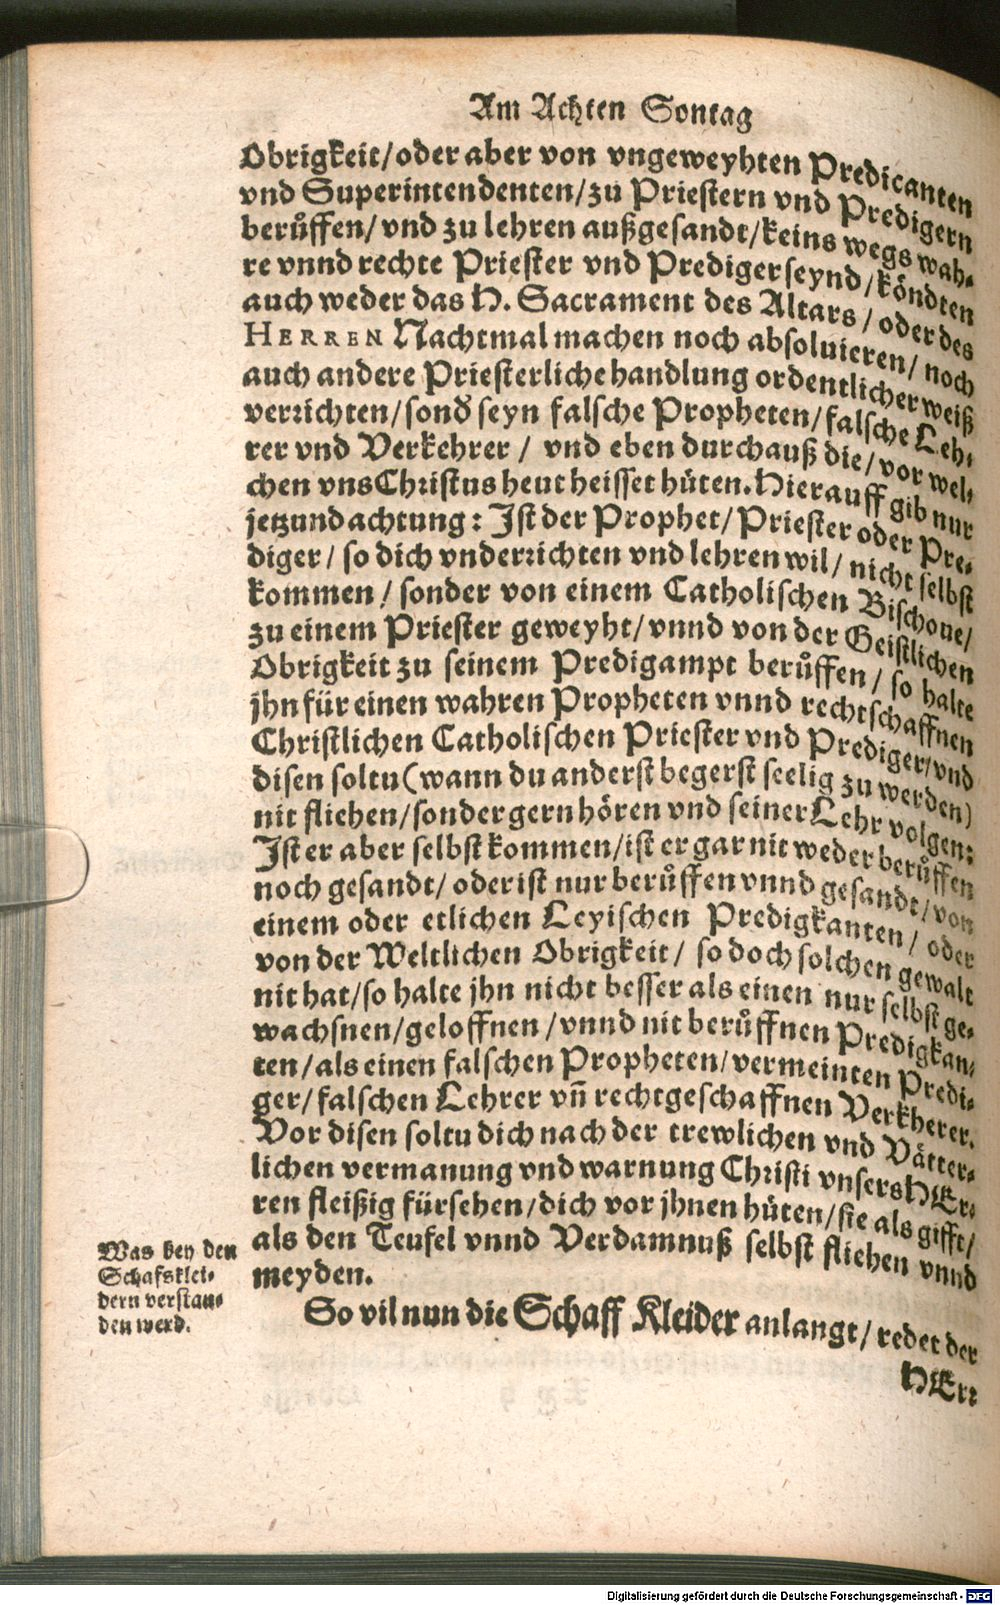 Am Achten Sontag
Obrigkeit/oder aber von vngeweyhten Predicanten
vnd Superintendenten/zů Priestern vnd Predigern
berůffen/vnd zu lehren außgesandt/keins wegs wah-
re vnnd rechte Priester vnd Prediger seynd/köndten
auch weder das H. Sacrament des Altars/oder des
HERREN Nachtmal machen noch absoluieren/noch
auch andere Priesterliche handlung ordentlicher weiß
verrichten/sonď seyn falsche Propheten/falsche Leh-
rer vnd Verkehrer/ vnd eben durchauß die/vor wel-
chen vns Christus heut heisset hüten. Hierauff gib nur
jetzund achtung: Ist der Prophet/Priester oder Pre-
diger/so dich vnderrichten vnd lehren wil/nicht selbst
kommen/sonder von einem Catholischen Bischoue/
zu einem Priester geweyht/vnnd von der Geistlichen
Obrigkeit zu seinem Predigampt berůffen/so halte
jhn für einen wahren Propheten vnnd rechtschaffnen
Christlichen Catholischen Priester vnd Prediger/vnd
disen soltu (wann du anderst begerst seelig zu werden)
nit fliehen/sonder gern hören vnd seiner Lehr volgen:
Ist er aber selbst kommen/ist er gar nit weder berůffen
noch gesandt/oder ist nur berůffen vnnd gesandt/von
einem oder etlichen Leyischen Predigkanten/oder
von der Weltlichen Obrigkeit/so doch solchen gewalt
nit hat/so halte jhn nicht besser als einen nur selbst ge-
wachsnen/geloffnen/vnnd nit berůffnen Predigkan-
ten/als einen falschen Propheten/vermeinten Predi-
ger/falschen Lehrer vñ rechtgeschaffnen Verkherer.
Vor disen soltu dich nach der trewlichen vnd Vätter-
lichen vermanung vnd warnung Christi vnsers HEr-
ren fleißig fürsehen/dich vor jhnen hüten/sie als gifft/
als den Teufel vnnd Verdamnuß selbst fliehen vnnd
meyden.
Was bey den
Schafsklei-
dern verstan-
den werd.
So vil nun die Schaff Kleider anlangt/redet der
HErr
Digitalisierung gefördert durch die Deutsche Forschungsgemeinschaft - DFG